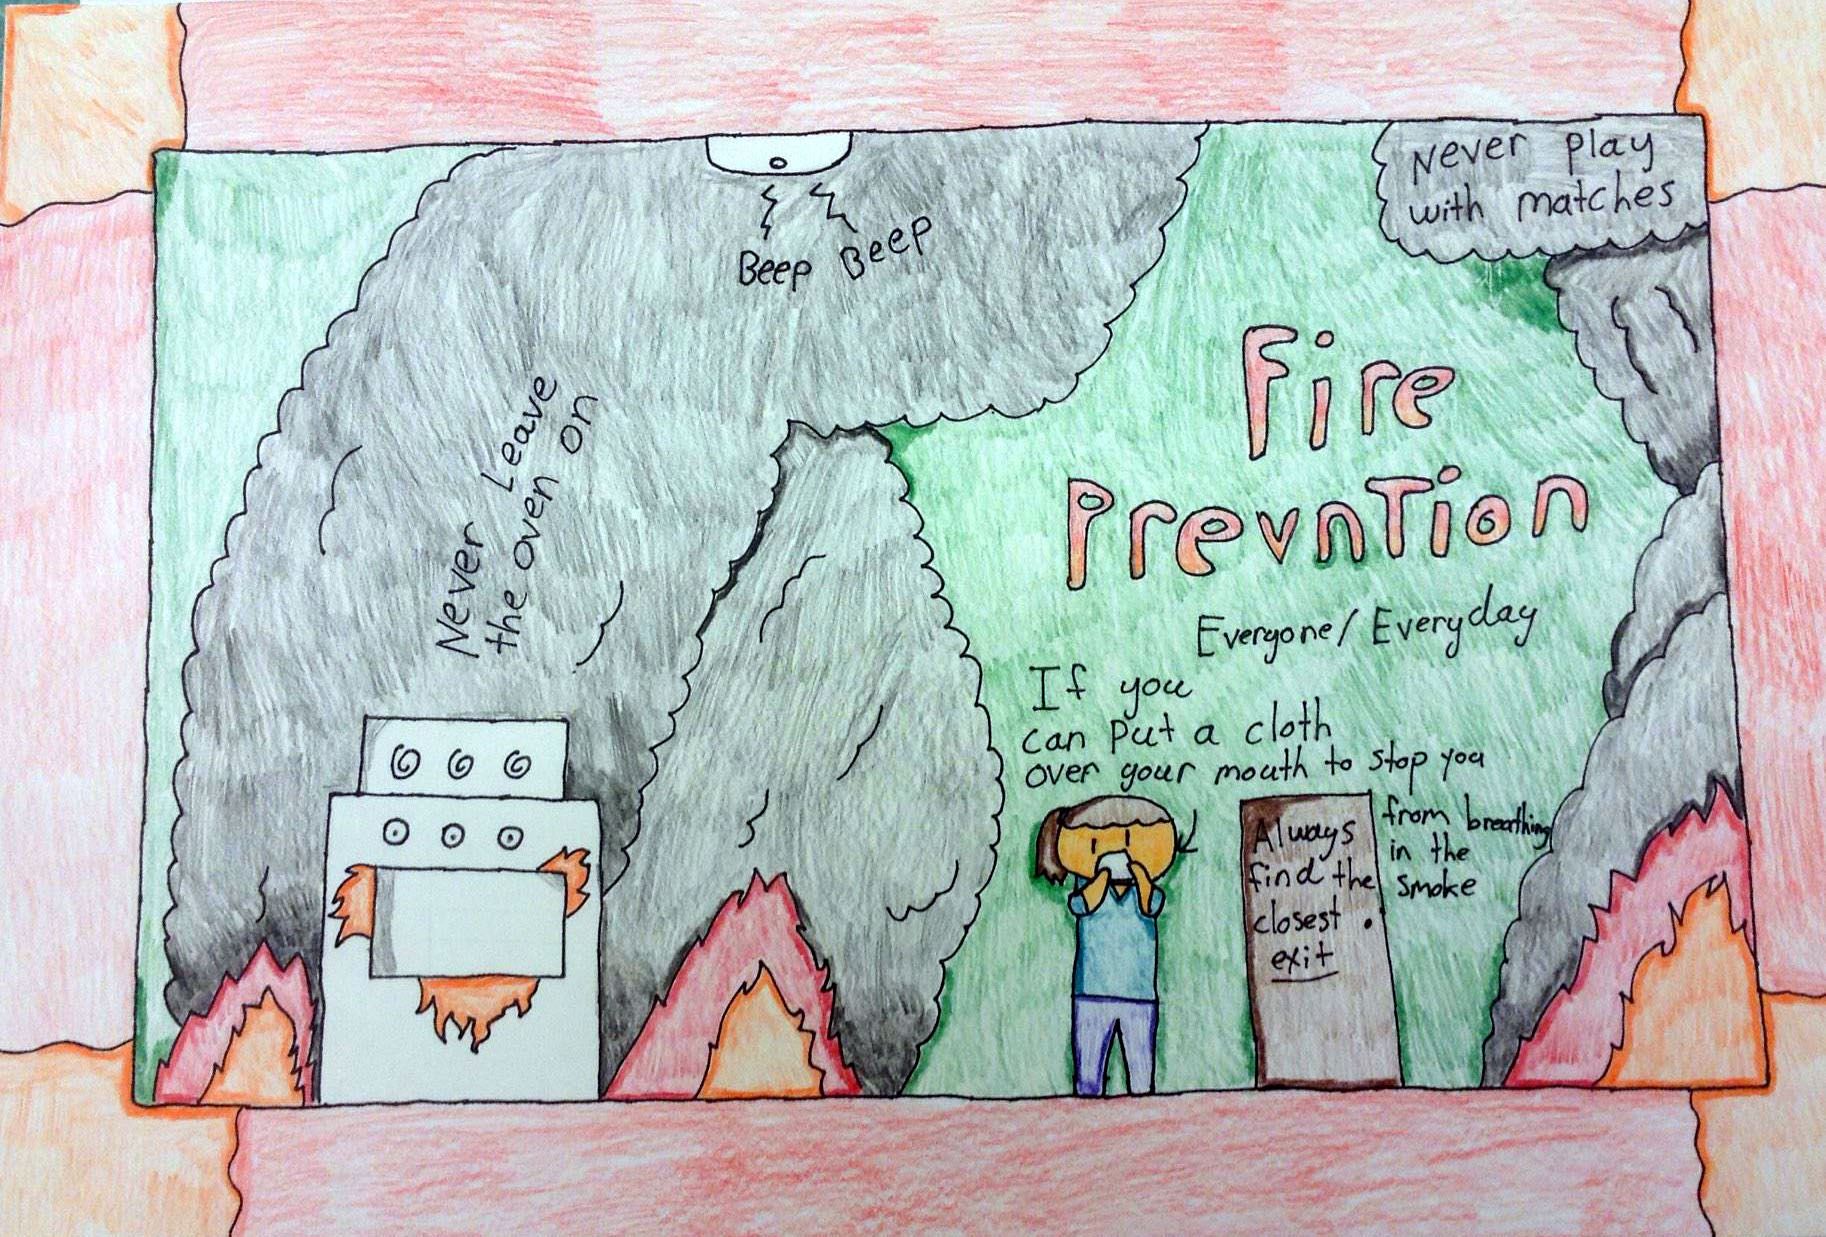 Never play
with matches
Beep Beep
Never Leave
the oven on
Fire
PrevnTion
Everyone/Everyday
If you
can Put a cloth
over your mouth to stop you
from breathing
in the
smoke
Always
find the
closest
exit